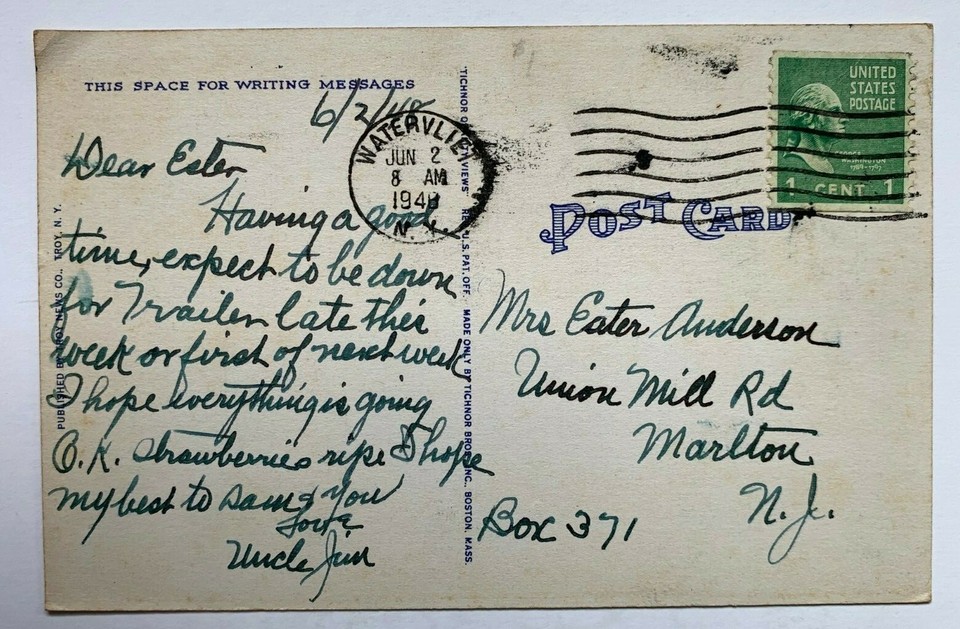 THIS SPACE FOR WRITING MESSAGES
6/2/48
Dear Ester
Having a good
time, expect to be down
for Trailer late this
week or first of next week
I hope everything is going
O.K. Strawberries ripe I hope
my best to Sam & You
Love
Uncle Jim
PUBLISHED BY TROY NEWS CO., TROY, N. Y.
"TICHNOR QUALITY VIEWS" REG. U.S. PAT. OFF. MADE ONLY BY TICHNOR BROS., INC., BOSTON, MASS.
WATERVLIET
JUN 2
8 AM
1948
N. Y.
UNITED
STATES
POSTAGE
GEORGE
WASHINGTON
1789-1797
1 CENT 1
POST CARD
Mrs Ester Anderson
Union Mill Rd
Marlton
N. J.
Box 371